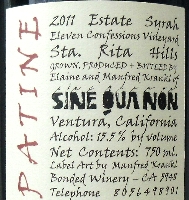 PATINE
2011 Estate Syrah
Eleven Confessions Vineyard
Sta. Rita Hills
GROWN, PRODUCED + BOTTLED By
Elaine and Manfred Krankl of
SINE QUA NON
Ventura, California
Alcohol: 15.5% by volume
Net Contents: 750 ml.
Label Art by Manfred Krankl
Bonded Winery - CA 5948
Telephone 8056494890!